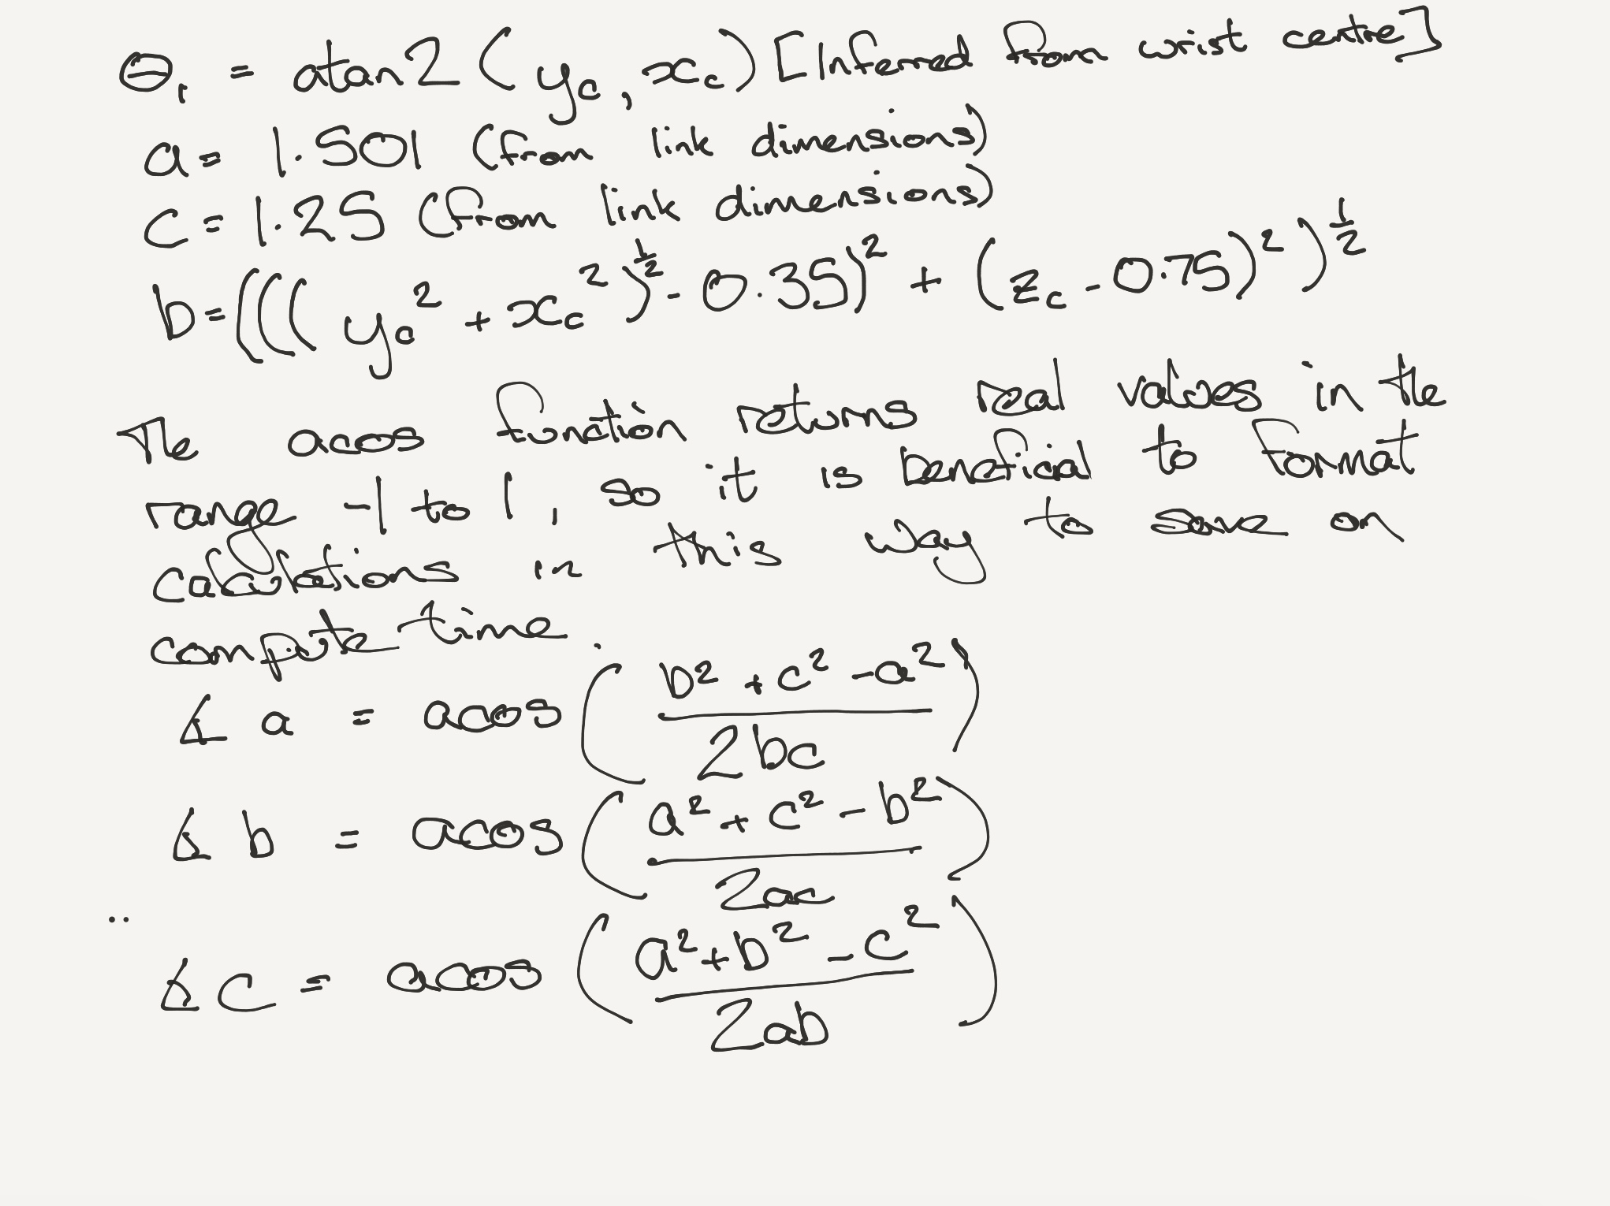 θ₁ = atan2 (y_c, x_c) [Inferred from wrist centre]
a = 1.501 (from link dimensions)
c = 1.25 (from link dimensions)
b = (((y_c² + x_c²)^½ - 0.35)² + (z_c - 0.75)²)^½
The acos function returns real values in the
range -1 to 1, so it is beneficial to format
calculations in this way to save on
compute time.
∡ a = acos((b² + c² - a²) / 2bc)
∡ b = acos((a² + c² - b²) / 2ac)
∡ c = acos((a² + b² - c²) / 2ab)